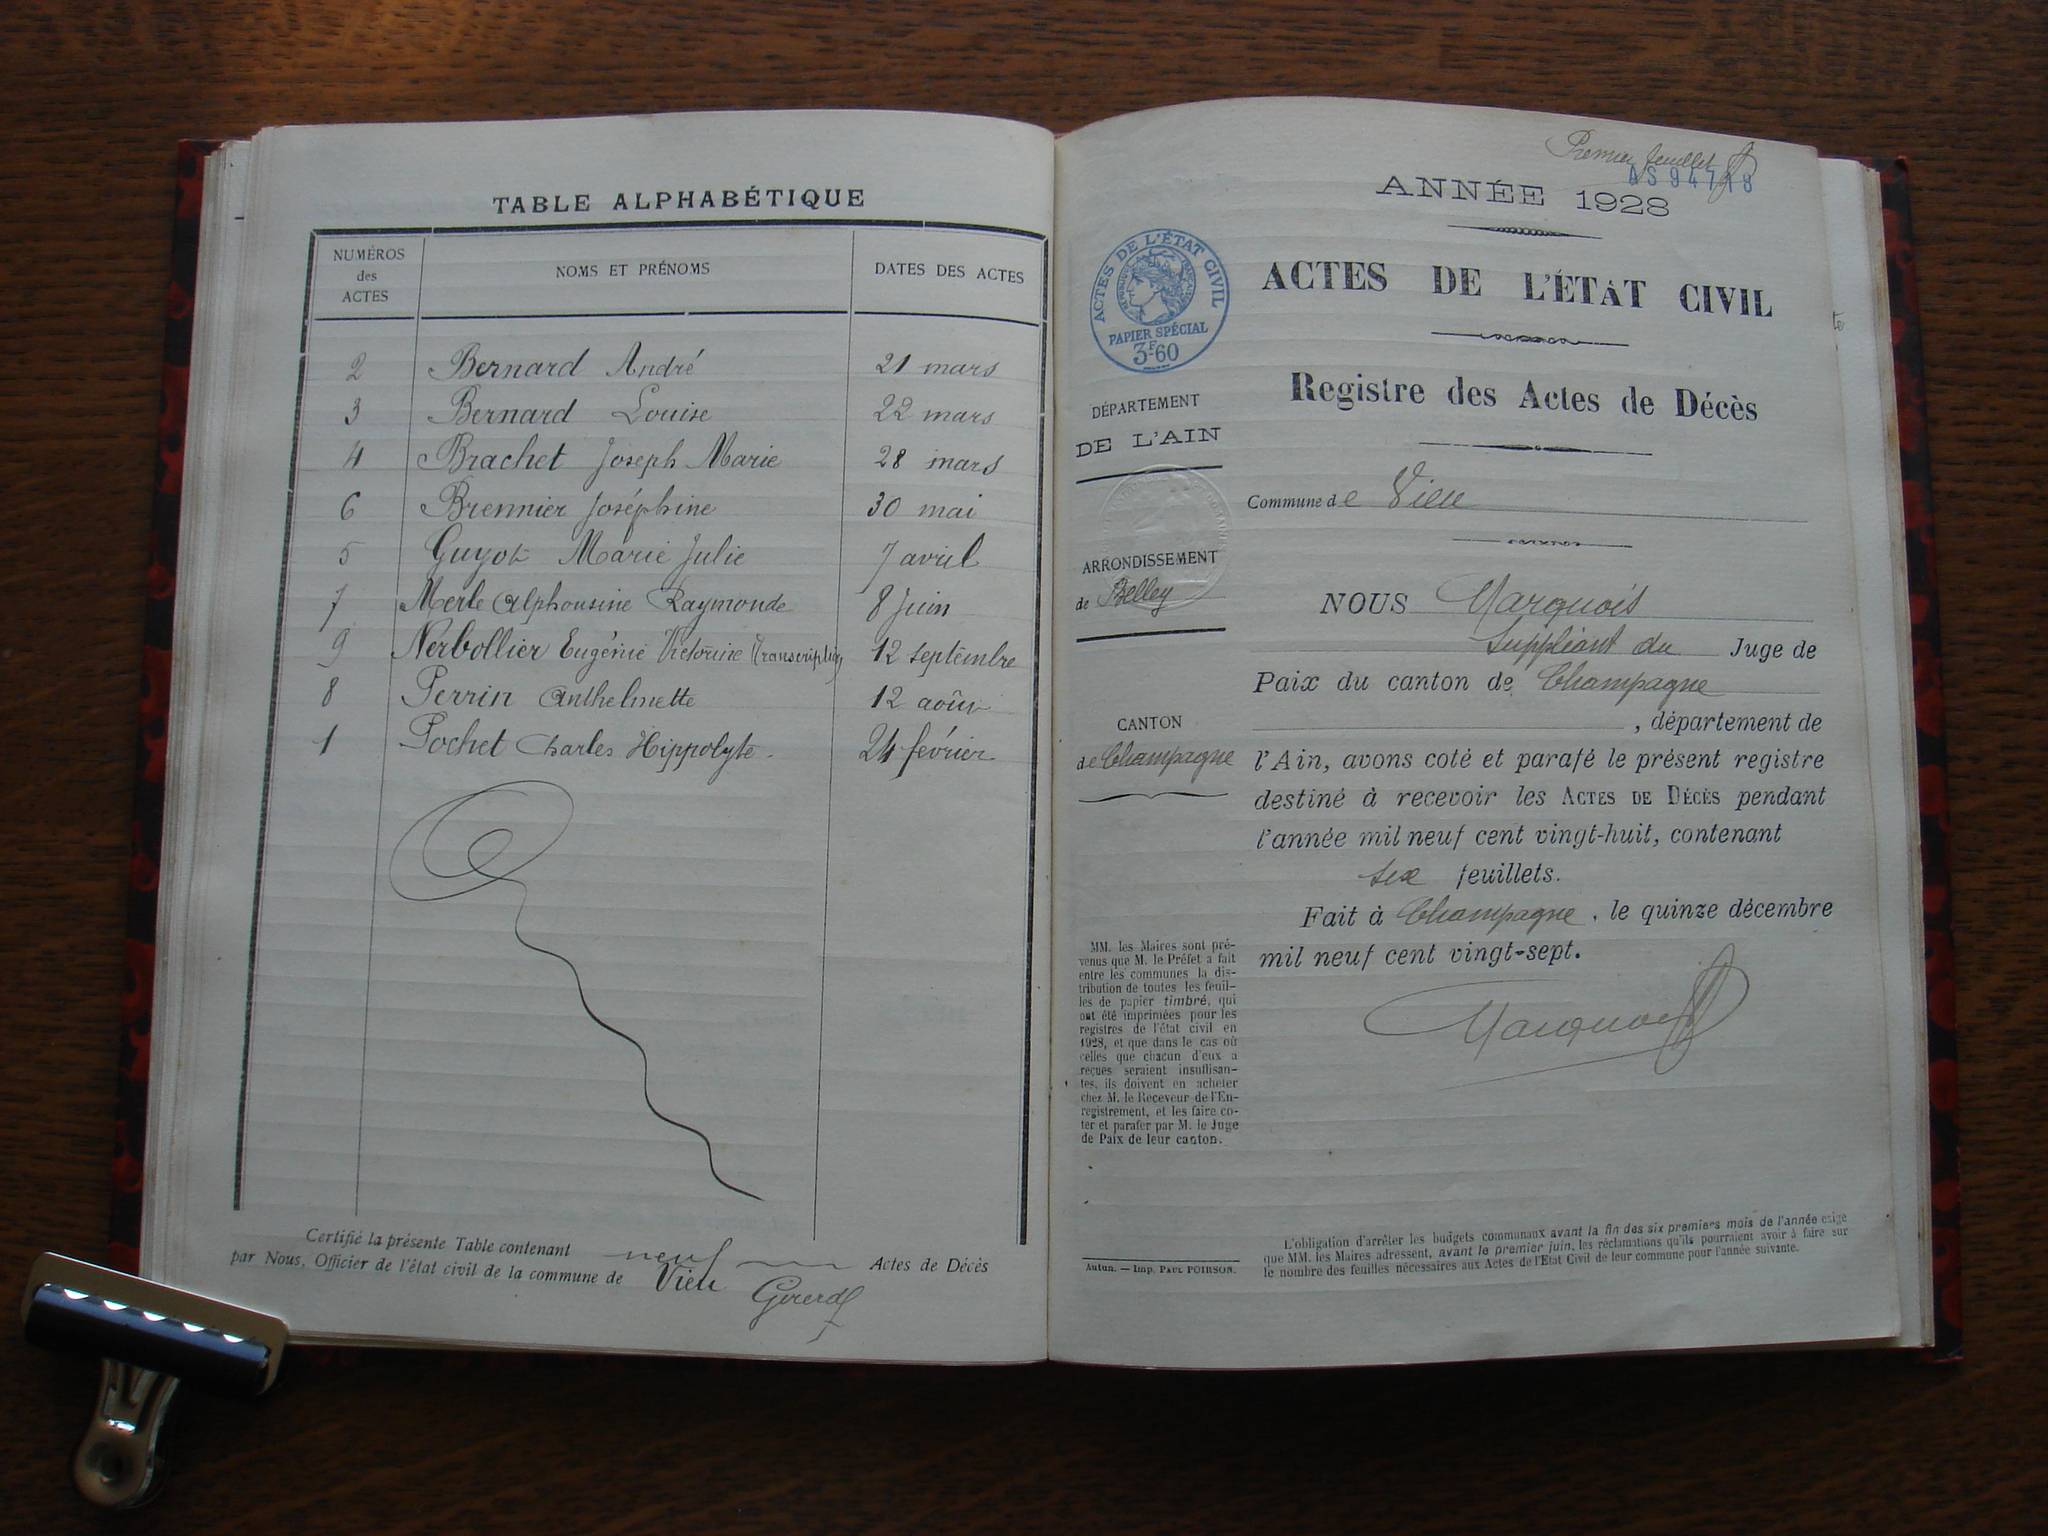 TABLE ALPHABÉTIQUE
NUMÉROS des ACTES NOMS ET PRÉNOMS DATES DES ACTES
2 Bernard André 21 mars
3 Bernard Louise 22 mars
4 Brachet Joseph Marie 28 mars
6 Brennier Joséphine 30 mai
5 Guyot Marie Julie 7 avril
7 Merle Alphonsine Raymonde 8 juin
9 Nerbollier Eugénie Victorine (transcription) 12 septembre
8 Perrin Anthelmette 12 août
1 Pochet Charles Hippolyte. 24 février
Certifié la présente Table contenant neuf Actes de Décès
par Nous, Officier de l'état civil de la commune de Vieu
Premier feuillet
ANNÉE 1928
ACTES DE L'ÉTAT CIVIL
PAPIER SPÉCIAL
3F60
ACTES DE L'ÉTAT CIVIL
Registre des Actes de Décès
DÉPARTEMENT
DE L'AIN
Commune de Vieu
ARRONDISSEMENT
de Belley
CANTON
de Champagne
NOUS Marquois
Suppléant du Juge de
Paix du canton de Champagne
, département de
l'Ain, avons coté et parafé le présent registre
destiné à recevoir les ACTES DE DÉCÈS pendant
l'année mil neuf cent vingt-huit, contenant
six feuillets.
Fait à Champagne, le quinze décembre
mil neuf cent vingt-sept.
Marquois
MM. les Maires sont pré-
venus que M. le Préfet a fait
entre les communes la dis-
tribution de toutes les feuil-
les de papier timbré, qui
ont été imprimées pour les
registres de l'état civil en
1928, et que dans le cas où
celles que chacun d'eux a
reçues seraient insuffisan-
tes, ils doivent en acheter
chez M. le Receveur de l'En-
registrement, et les faire co-
ter et parafer par M. le Juge
de Paix de leur canton.
Autun. — Imp. PAUL POIRSON.
L'obligation d'arrêter les budgets communaux avant la fin des six premiers mois de l'année exige
que MM. les Maires adressent, avant le premier juin, les réclamations qu'ils pourraient avoir à faire sur
le nombre des feuilles nécessaires aux Actes de l'Etat Civil de leur commune pour l'année suivante.